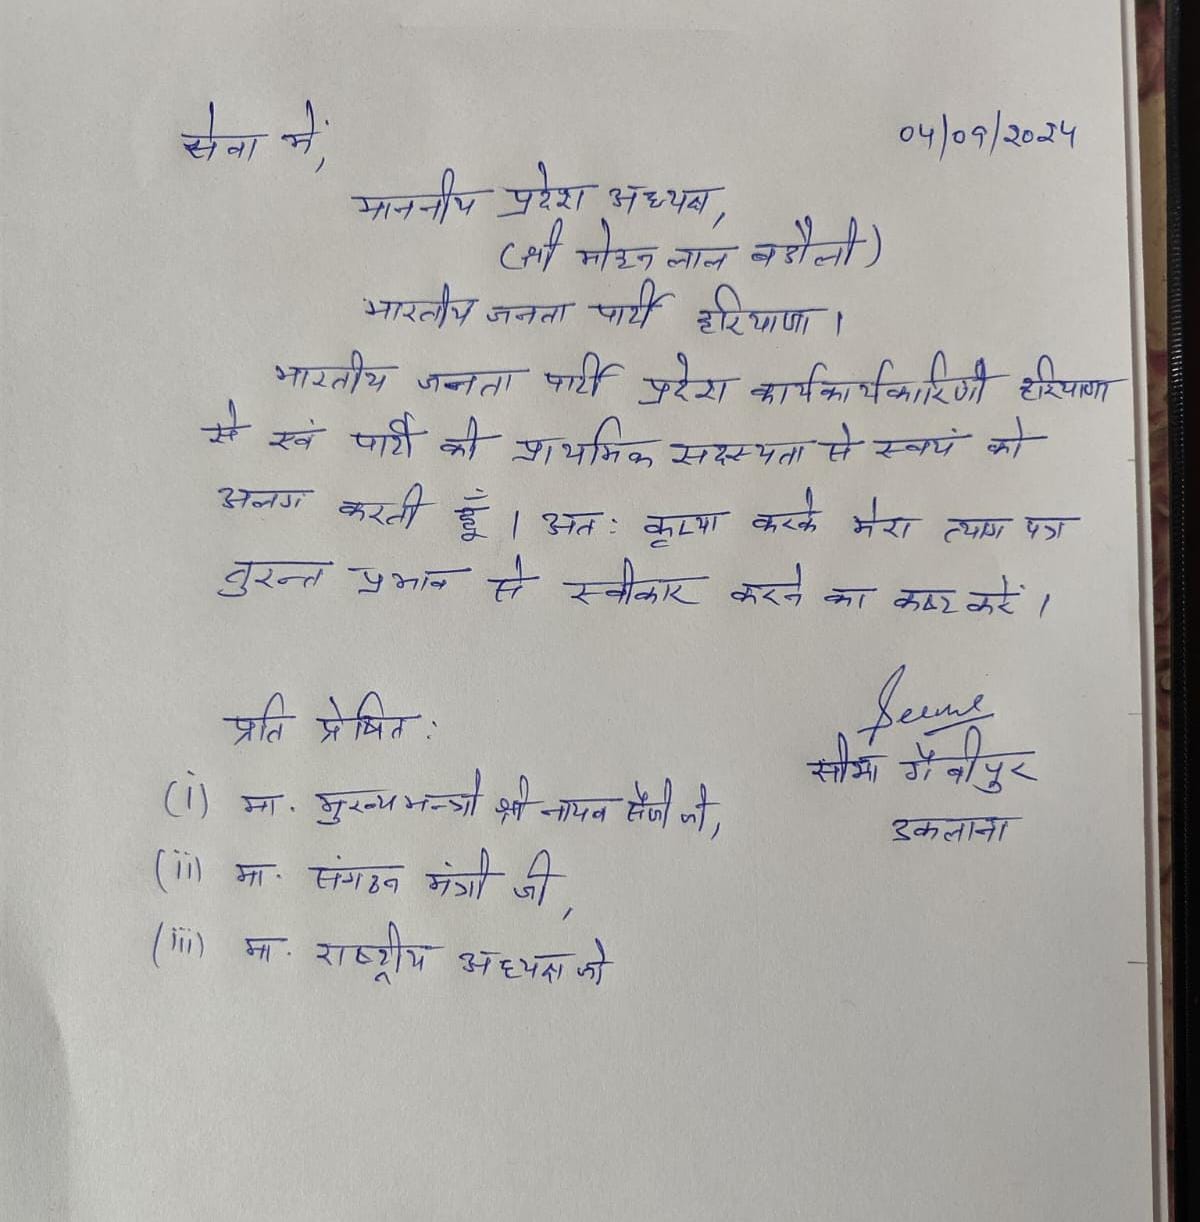 सेवा में,
04/09/2024
माननीय प्रदेश अध्यक्ष,
(श्री मोहन लाल बडौली)
भारतीय जनता पार्टी हरियाणा।
भारतीय जनता पार्टी प्रदेश कार्यकार्यकारिणी हरियाणा
से एवं पार्टी की प्राथमिक सदस्यता से स्वयं को
अलग करती हूँ। अतः कृप्या करके मेरा त्याग पत्र
तुरन्त प्रभाव से स्वीकार करने का कष्ट करें।
प्रति प्रेषित:
(i) मा. मुख्यमन्त्री श्री नायब सैनी जी,
(ii) मा. संगठन मंत्री जी,
(iii) मा. राष्ट्रीय अध्यक्ष जी
सीमा गैबीपुर
उकलाना